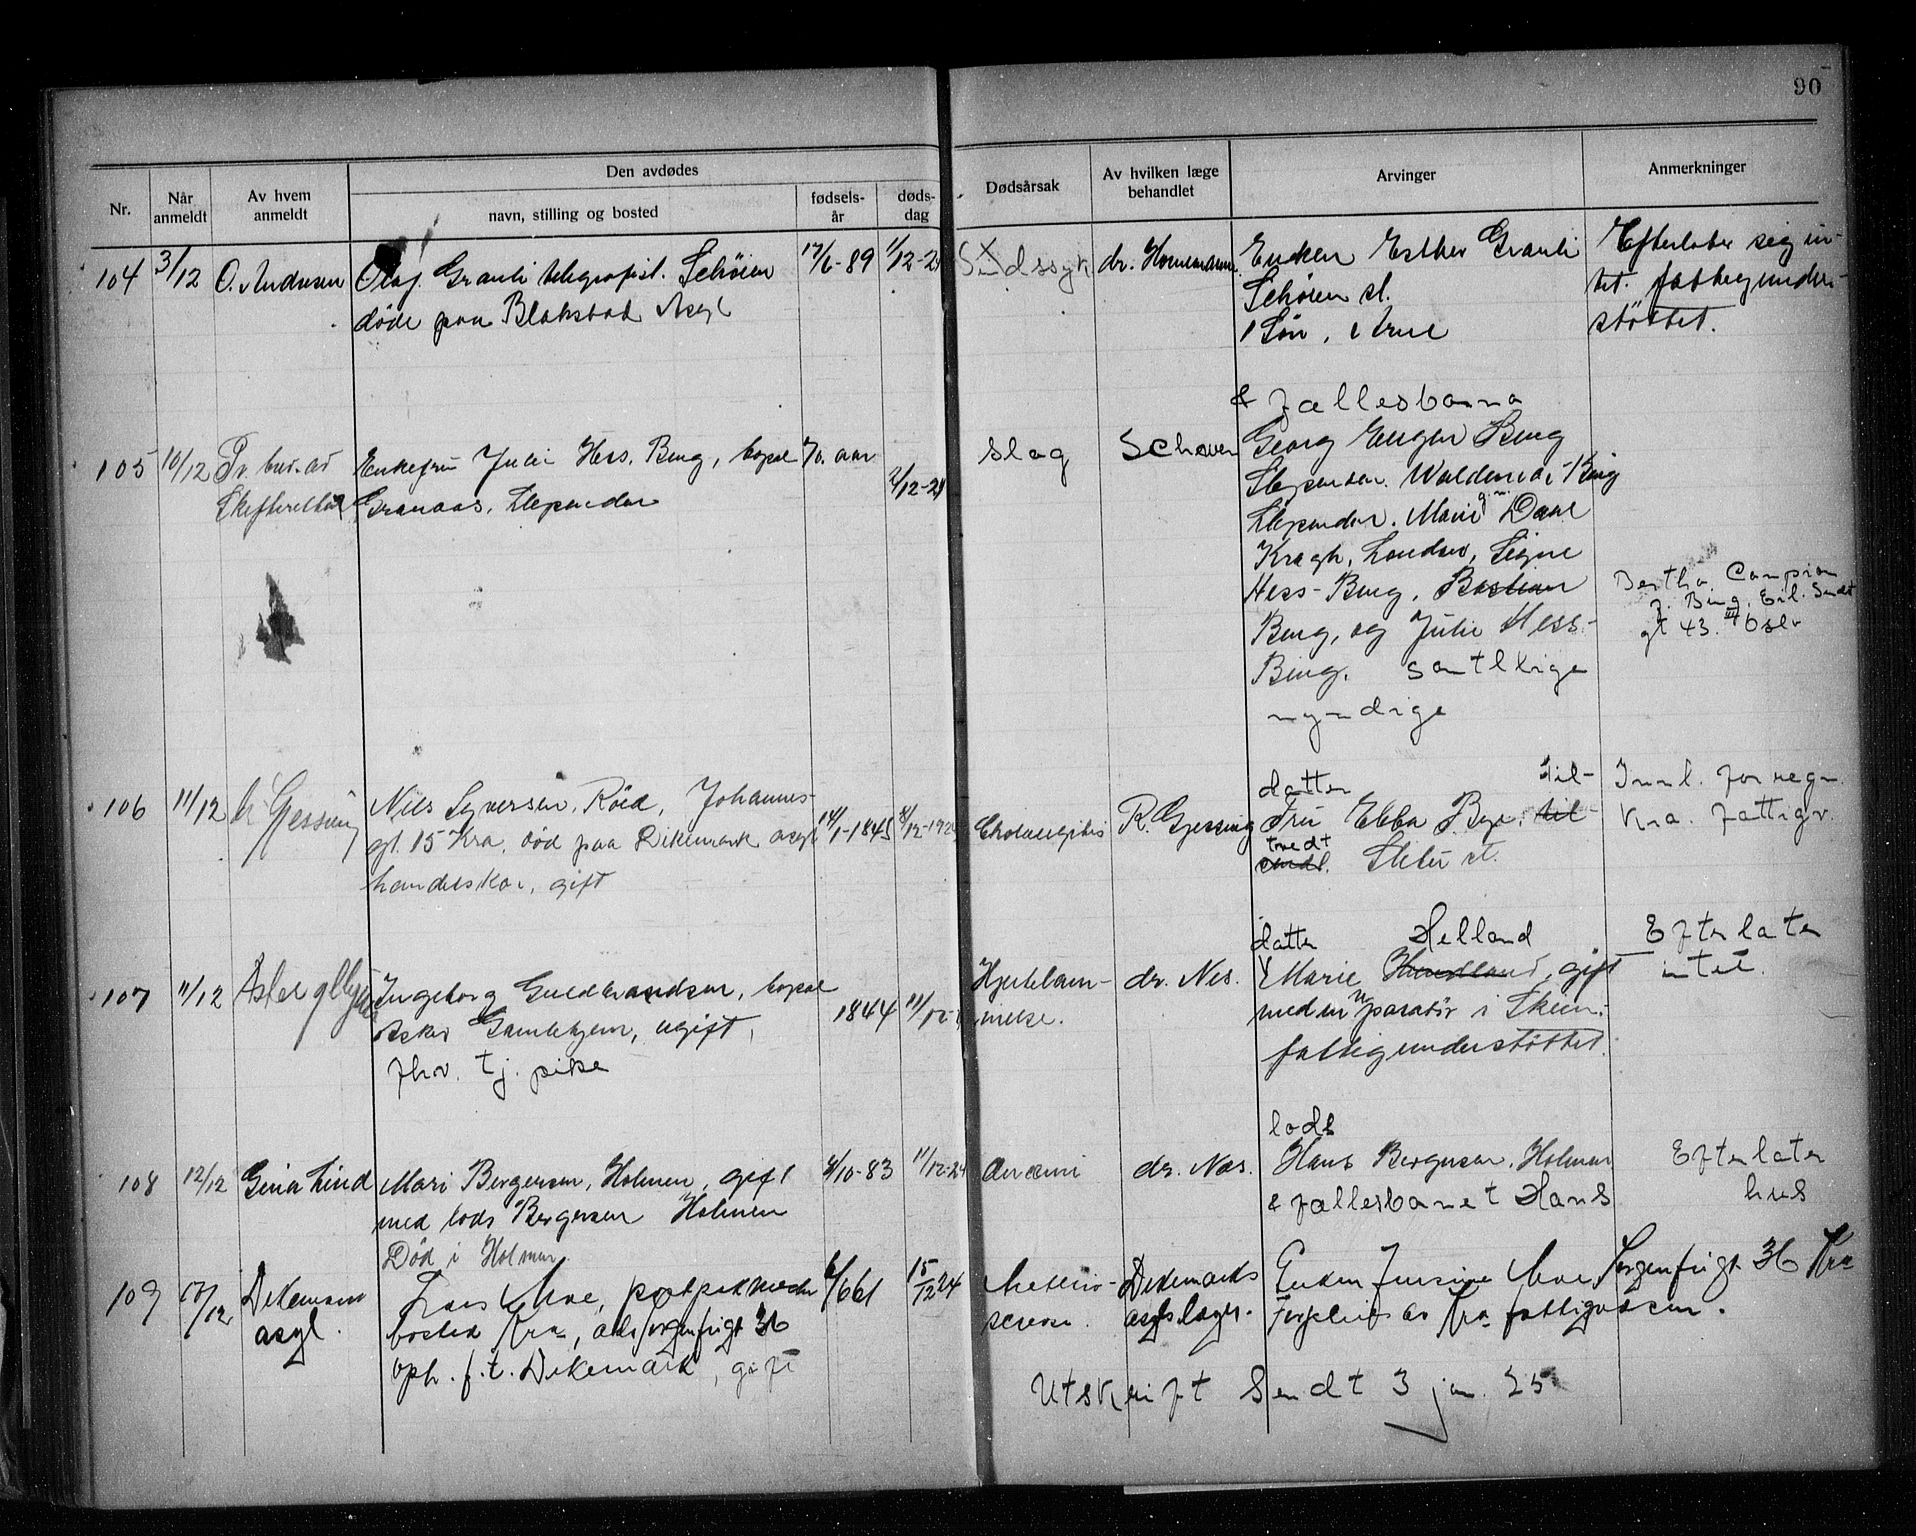 90
Nr.
Når anmeldt
Av hvem anmeldt
Den avdødes
navn, stilling og bosted
fødsels-år
døds-dag
Dødsårsak
Av hvilken læge behandlet
Arvinger
Anmerkninger
104 3/12 O. Andersen
Olaf Granli telegrafist. Schøien
døde paa Blakstad Asyl
17/6-89 1/12-24
Sindssyk dr.
Enken Esther Granli
Schøien st.
1 Søn, Arne
Efterlater sig in-
tet. fattigunder-
støttet.
105 10/12 Pr. bud. ad
Skifteretten
Enkefru Julie Hess. Berg, bopæl
Granaas, Slependen
70. aar
2/12-24
slag
& fællesbarna
Georg Eugen Berg
Slependen. Waldemar Berg
Slependen. Marie
Kragh, London, Signe
Hess-Berg, Bastian
Berg, og Julie Hess-
Berg. samtlige
myndige
Bertha
gt 43. III Oslo
106 11/12 Gjessing
Nils Syversen Röed, Johannes-
gt. 15 Kra. död paa Dikemark asyl
handelskar, gift
14/1-1845 8/12-1924
R. Gjessing
datter
Fru Ebba Bye, til-
tredt
Sköien st.
Innl. forregn.
Kra. fattigv.
107 11/12
Ingeborg Guldbrandsen, bopæl
Asker Gamlehjem, ugift,
fhv. tj. pike
1844 11/12-
Hjertelam-
melse.
dr. Nes.
datter Helland
Marie gift
med en i Skien.
fattigunderstöttet.
Efterlater
intet.
108 12/12 Gina Lind
Mari Bergersen, Holmen, gift
med lods Bergersen Holmen
Död i Holmen
4/10-83 11/12-24
Anæmi
dr. Næs.
lods
Hans Bergersen, Holmen
& fællesbarnet Hans
Efterlater
hus
109 17/12 Dikemark
asyl.
Moe,
bosted Kra,
oph. f. t. Dikemark, gift
6/6 61 15/12 24
Arterio-
sclerose.
Dikemarks
asyls læger.
Enken Moe, Sorgenfrigt 36 Kra
av Kra fattigvæsen.
Utskrift Sendt 3 jan. 25